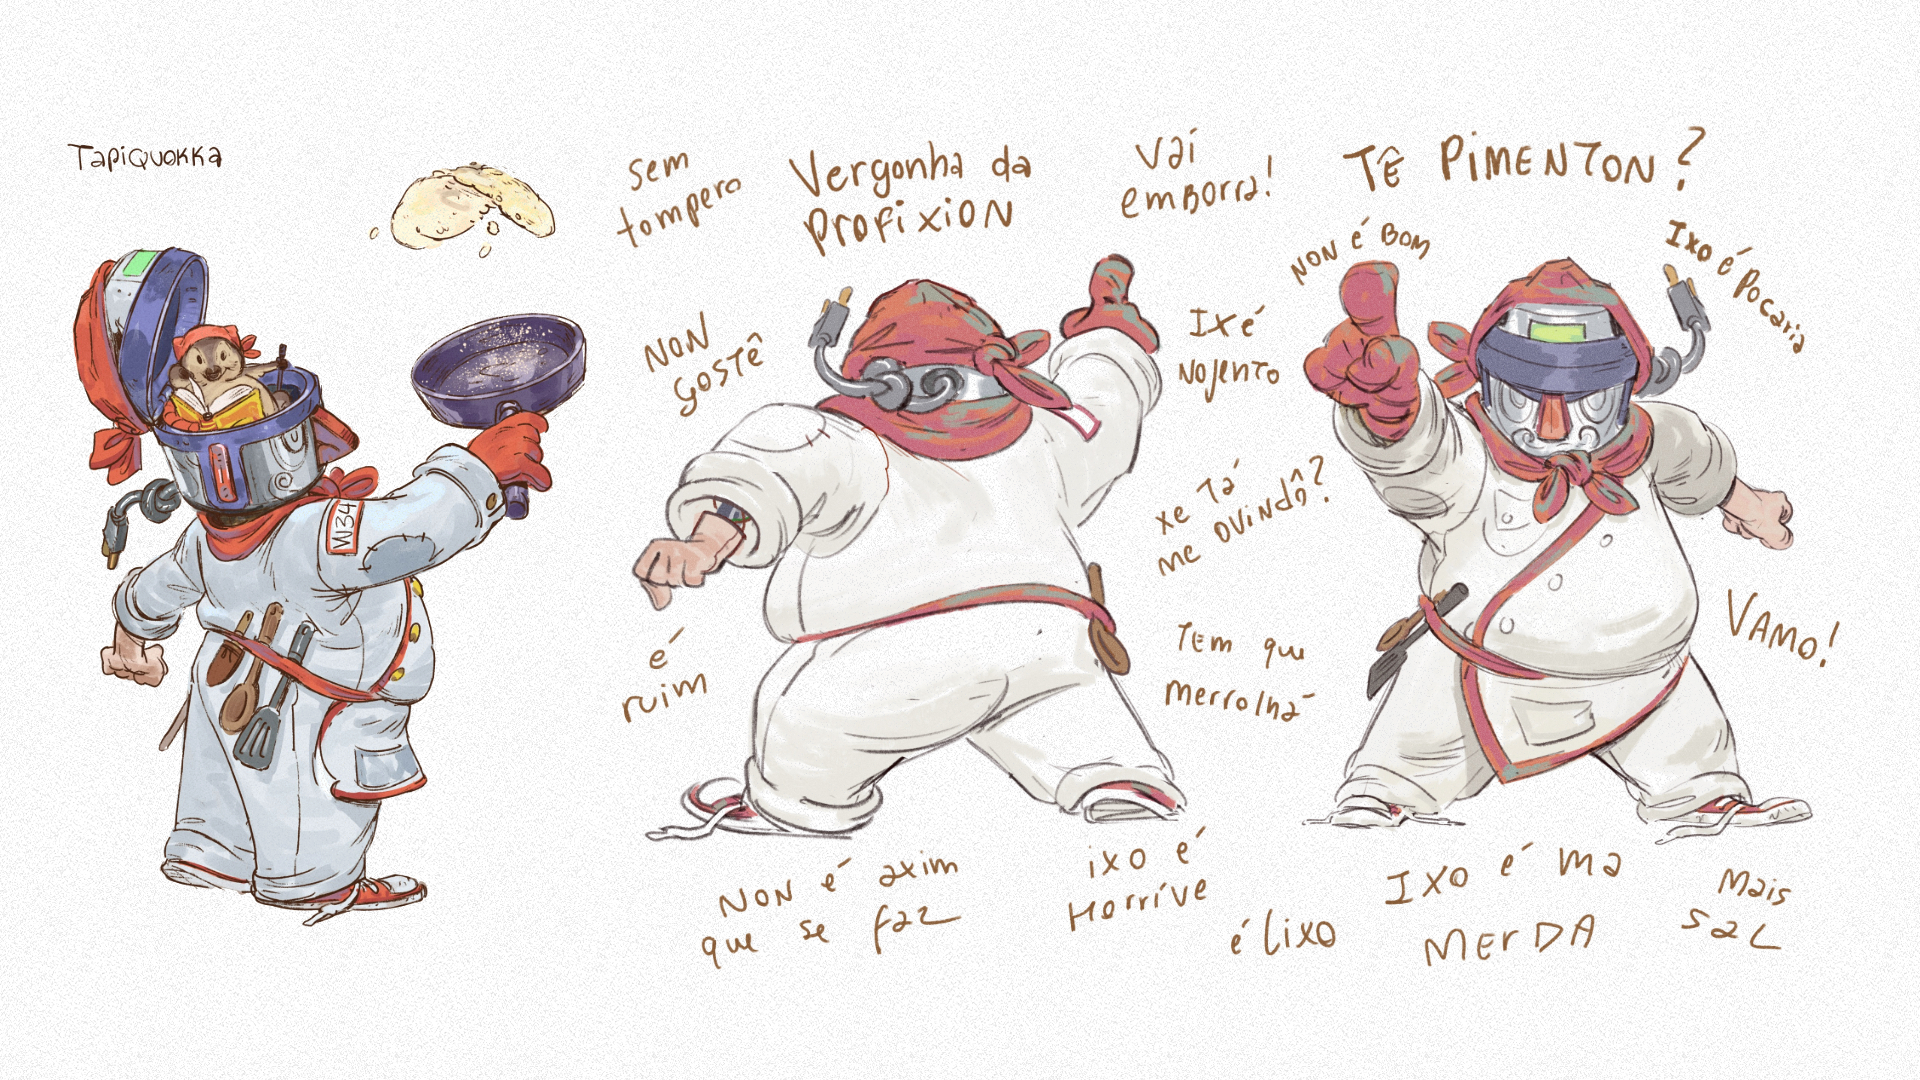 TapiQuokka
sem
tompero
Vergonha da
Profixion
Vai
emborra!
TÊ PIMENTON?
NON é BOM
Ixo é Pocaria
NON
gostê
Ix é
Nojento
W34
xe Tá
me ovindô?
VAMO!
é
ruim
Tem que
merrolhá
NON é axim
que se faz
ixo é
Horríve
é lixo
IXO é ma
MerDA
Mais
SaL